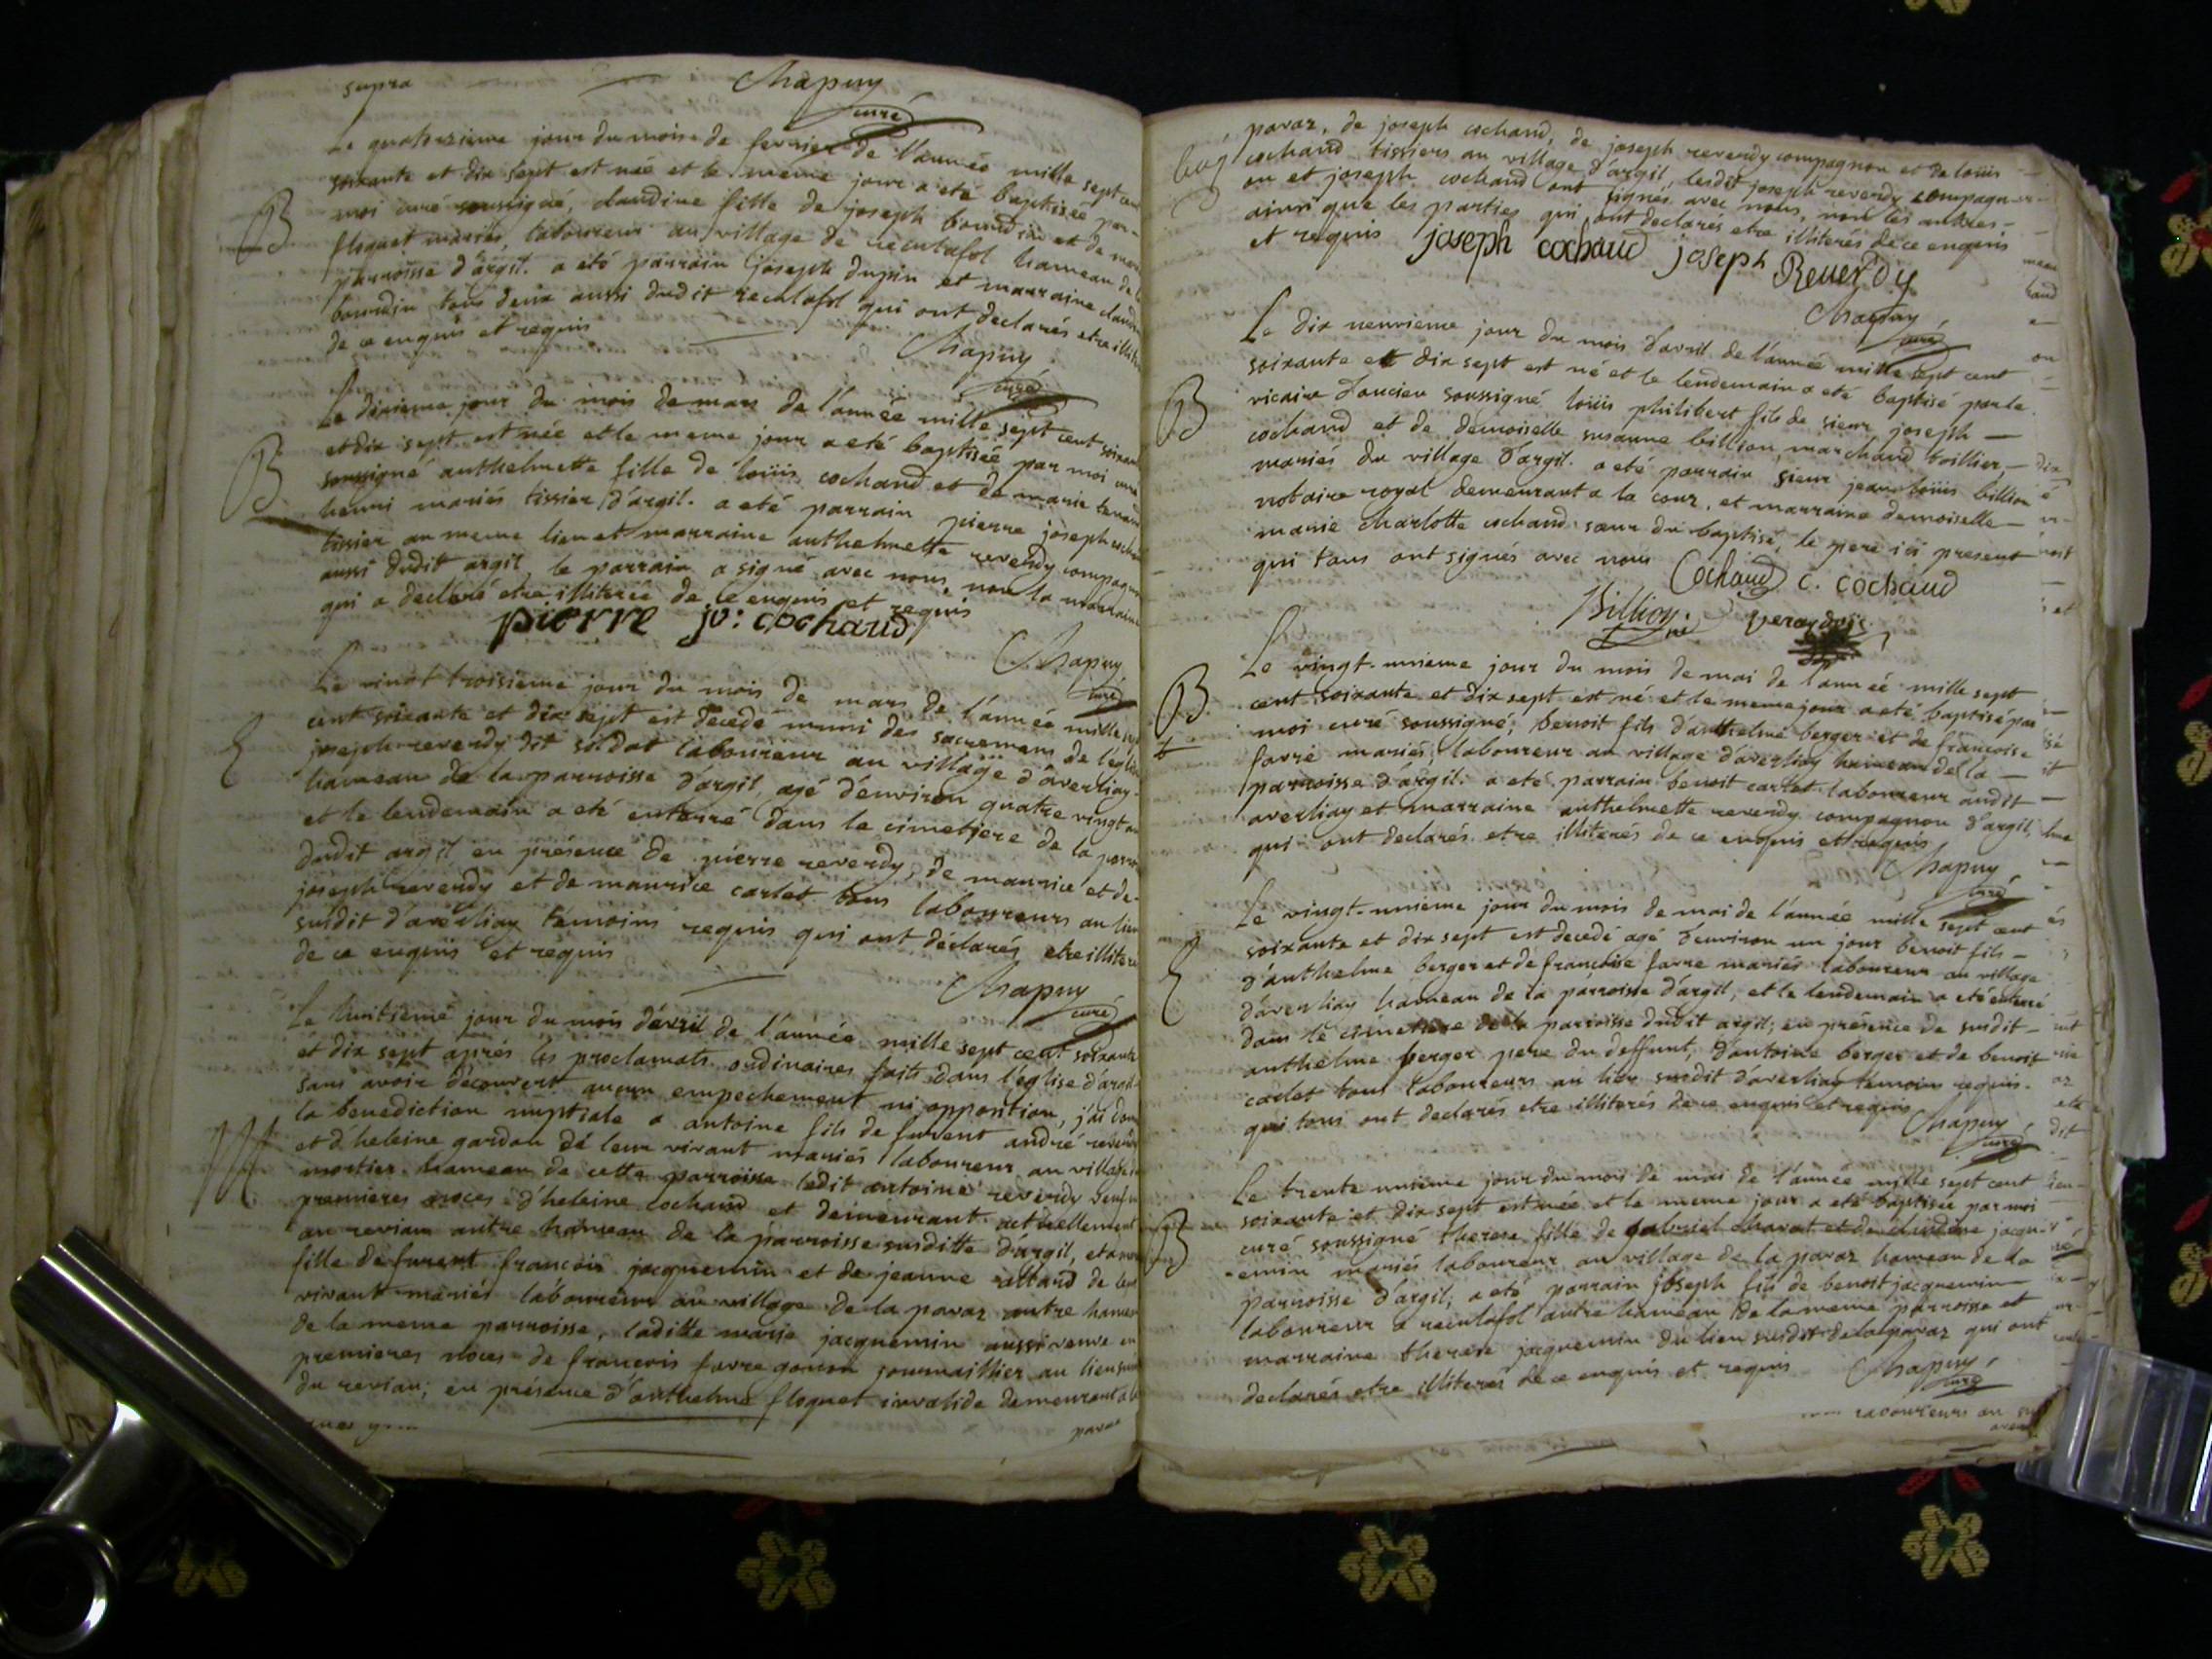 supra Chapuy
curé
Le quatorzieme jour du mois de fevrier de l'année mille sept cent
soixante et dix sept est née et le meme jour a eté baptisée par
B moi curé soussigné, claudine fille de joseph bourdin et de
floquet mariés, laboureur au village de reculafol hameau de la
parroisse d'argil. a eté parrain joseph dupin et marraine
bourdin tous deux aussi dudit reculafol qui ont declarés etre
de ce enquis et requis Chapuy
curé
Le dixieme jour du mois de mars de l'année mille sept cent
et dix sept est née et le meme jour a eté baptisée par moi curé
B soussigné anthelmette fille de loüis cochand et de marie
henri mariés tissier d'argil. a eté parrain pierre joseph
tissier au meme lieu et marraine anthelmette reverdy compagnon
aussi dudit argil, le parrain a signé avec nous, non la marraine
qui a declaré etre illiterée de ce enquis et requis
pierre jo: cochaud
Chapuy
curé
Le vingt troisieme jour du mois de mars de l'année mille
cent soixante et dix sept est decedé muni des sacremens de
joseph reverdy dit soldat laboureur au village d'averliay
hameau de la parroisse d'argil, agé d'environ quatre vingt
et le lendemain a eté enterré dans le cimetiere de la
dudit argil en présence de pierre reverdy, de maurice et de
joseph reverdy et de maurice carlet tous laboureurs au lieu
susdit d'averliay témoins requis qui ont déclarés etre
de ce enquis et requis
Chapuy
curé
Le huitsieme jour du mois d'avril de l'année mille sept cent soixante
et dix sept aprés les proclamats ordinaires faits dans l'eglise d'argil
sans avoir découvert aucun empechement ni opposition, j'ai
la benediction nuptiale a antoine fils de furent andré
M et d'heleine gardan de leur vivant mariés laboureur au village
mortier hameau de cette parroisse ledit antoine reverdy
premieres noces d'heleine cochand et demeurant actuellement
au reviau autre hameau de la parroisse susditte d'argil, et a
fille de furent françois jacquemin et de jeanne de leur
vivant mariés laboureur au village de la pavaz autre hameau
de la meme parroisse, laditte marie jacquemin aussi veuve en
premieres noces de francois favre journaillier au lieu
du reviau; en présence d'anthelme floquet invalide demeurant a la
pavaz
pavaz, de joseph cochand, de joseph reverdy compagnon et de loüis
cochand tissiers au village d'argil, lesdit joseph reverdy compagn-
on et joseph cochand ont signés avec nous, non les autres,
ainsi que les parties qui ont declarés etre illiterés de ce enquis
et requis joseph cochaud joseph Reuerdy
Chapuy
curé
Le dix neuvieme jour du mois d'avril de l'année mille sept cent
soixante et dix sept est né et le lendemain a eté baptisé par le
B vicaire soussigné loüis philibert fils de sieur joseph
cochand et de demoiselle susanne billion marchand toillier
mariés du village d'argil. a eté parrain sieur jean loüis billion
notaire royal demeurant a la cour, et marraine demoiselle
marie charlotte cochand sœur du baptisé, le pere ici present
qui tous ont signés avec nous Cochaud c. cochaud
Billion
Le vingt-unieme jour du mois de mai de l'année mille sept
B cent soixante et dix sept est né et le meme jour a eté baptisé par
moi curé soussigné, benoit fils d'anthelme berger et de francoise
favre mariés, laboureur au village d'averliay hameau de la
parroisse d'argil: a eté parrain benoit carlet laboureur audit
averliay et marraine anthelmette reverdy compagnon d'argil,
qui ont declarés etre illiterés de ce enquis et requis
Chapuy
curé
Le vingt-unieme jour du mois de mai de l'année mille sept cent
soixante et dix sept est decedé agé d'environ un jour benoit fils
d'anthelme berger et de françoise favre mariés laboureur au village
d'averliay hameau de la parroisse d'argil, et le lendemain a eté enterré
dans le cimetiere de la parroisse dudit argil; en présence de susdit
anthelme berger pere du deffunt, d'antoine berger et de benoit
carlet tous laboureurs au lieu susdit d'averliay temoins requis
qui tous ont declarés etre illiterés de ce enquis et requis
Chapuy
curé
Le trente unieme jour du mois de mai de l'année mille sept cent
soixante et dix sept est née et le meme jour a eté baptisée par moi
B curé soussigné therese fille de gabriel et de claudine jacqu-
emin mariés laboureur au village de la pavaz hameau de la
parroisse d'argil; a eté parrain joseph fils de benoit jacquemin
laboureur a reculafol autre hameau de la meme parroisse et
marraine therese jacquemin du lieu susdit de la pavaz qui ont
declarés etre illiterés de ce enquis et requis Chapuy
curé
laboureurs au